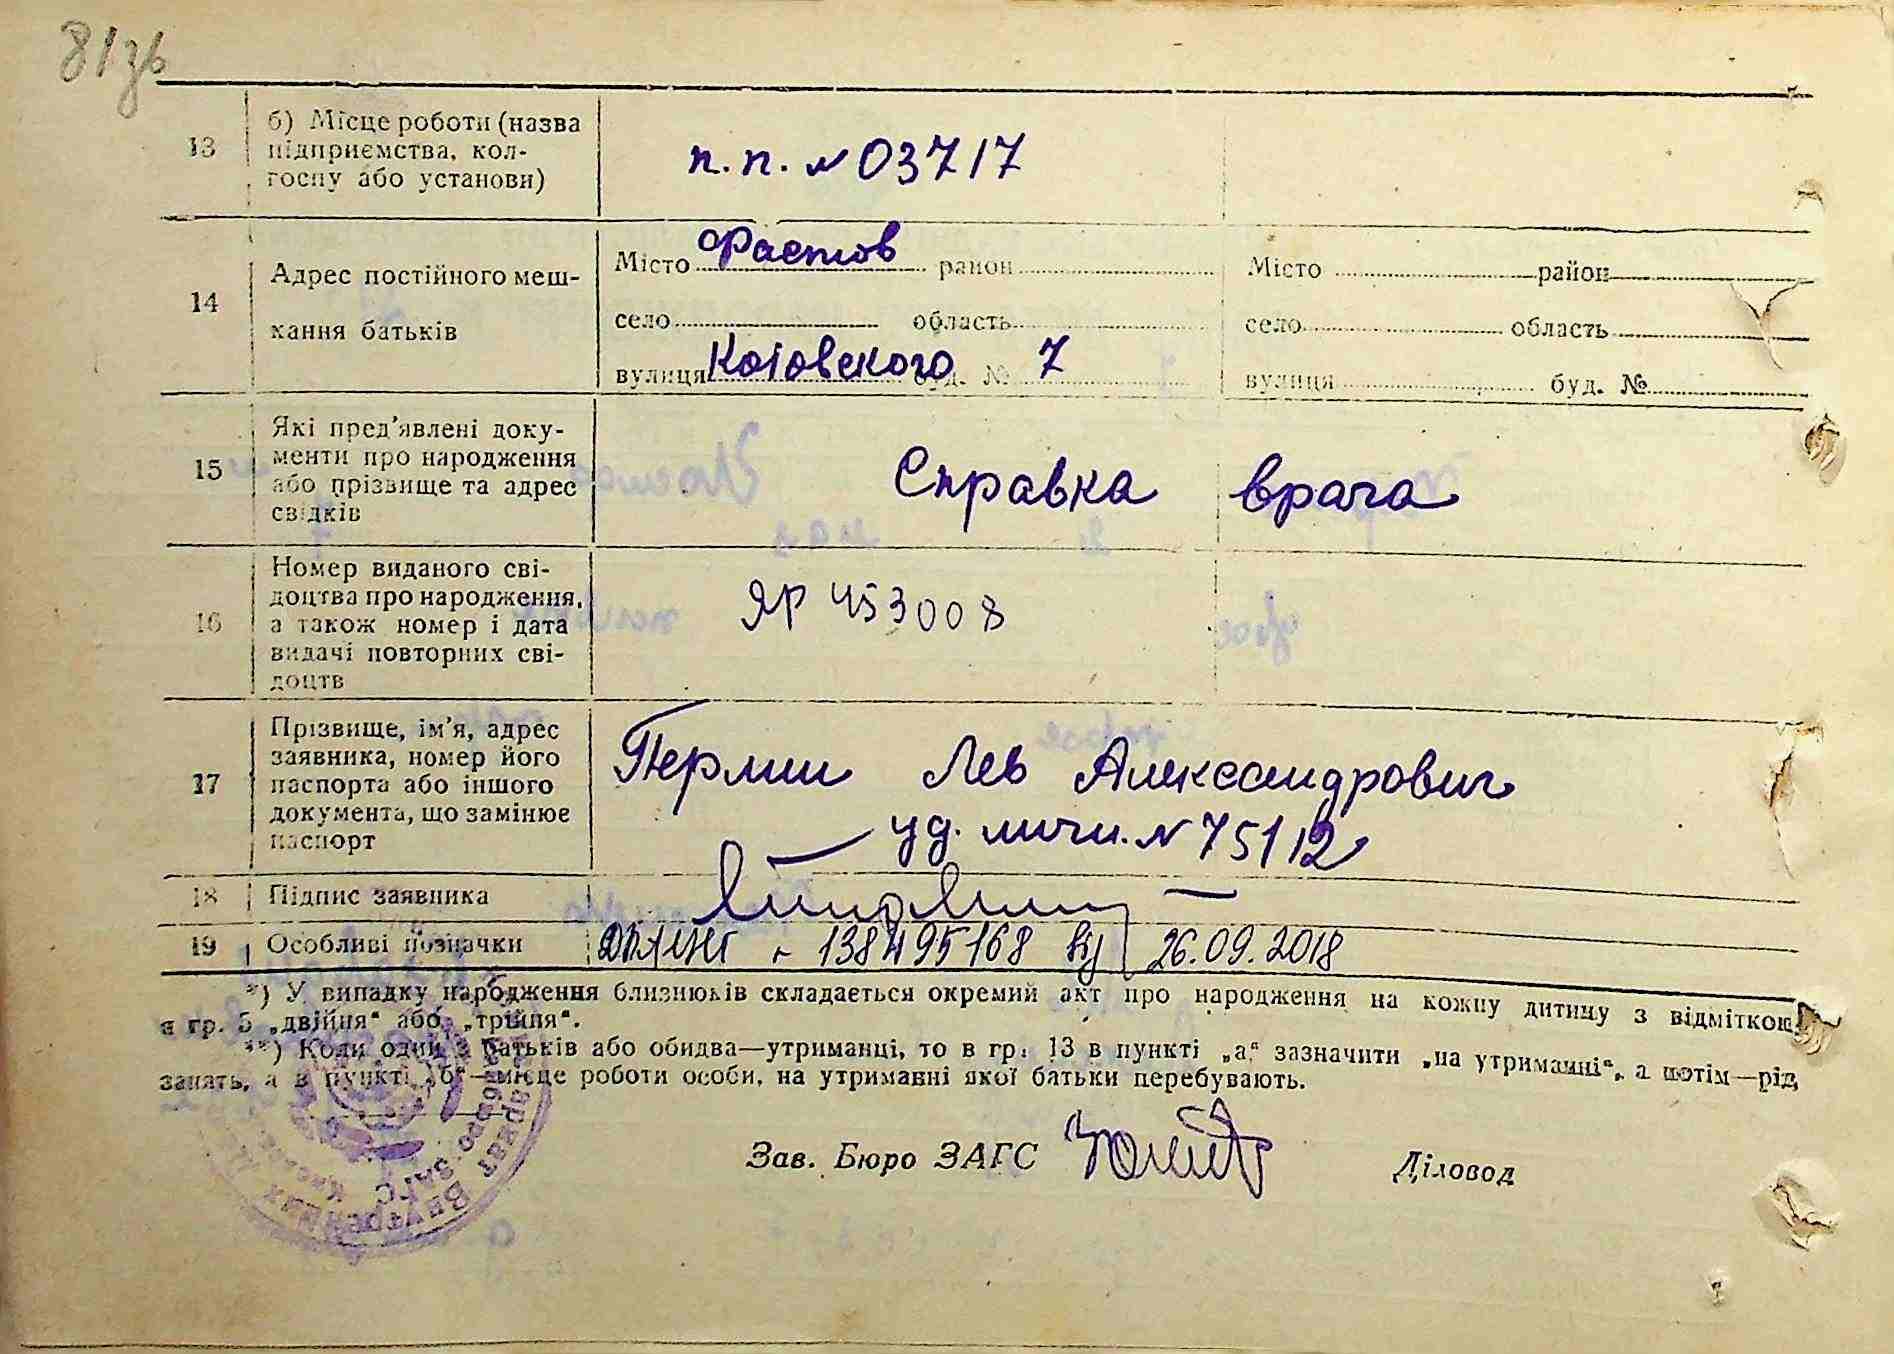 81зв
13
б) Місце роботи (назва
підприємства, кол-
госпу або установи)
п.п. № 03717
14
Адрес постійного меш-
кання батьків
Місто Фастов район
село область
вулиця Котовского буд. № 7
Місто район
село область
вулиця буд. №
15
Які пред'явлені доку-
менти про народження
або прізвище та адрес
свідків
Справка врача
16
Номер виданого сві-
доцтва про народження,
а також номер і дата
видачі повторних сві-
доцтв
ЯР 453008
17
Прізвище, ім'я, адрес
заявника, номер його
паспорта або іншого
документа, що замінює
паспорт
Лев Александрович
уд. личн. № 75112
18
Підпис заявника
19
Особливі позначки
138495168 26.09.2018
*) У випадку народження близнюків складається окремий акт про народження на кожну дитину з відміткою
в гр. 5 „двійня“ або „трійня“.
**) Коли один з батьків або обидва—утриманці, то в гр. 13 в пункті „а“ зазначити „на утриманні“, а потім—рід
занять, а в пункті „б“—місце роботи особи, на утриманні якої батьки перебувають.
Зав. Бюро ЗАГС
Діловод